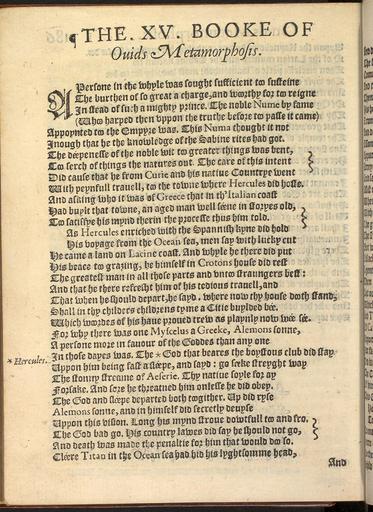 ¶THE. XV. BOOKE OF
Ouids Metamorphosis.
A Persone in the whyle was sought sufficient to susteine
The burthen of so great a charge, and woorthy for to reigne
In stead of such a mighty prince. The noble Nume by fame
(Who harped then uppon the truthe before to passe it came)
Appoynted to the Empyre was. This Numa thought it not
Inough that he the knowledge of the Sabine rites had got.
The deepenesse of the noble wit to greater things was bent,
To serch of things the natures out. The care of this intent
Did cause that he from Curie and his native Countrye went
With peynfull travell, to the towne where Hercules did hoste.
And asking who it was of Greece that in th'Italian coast
Had buylt that towne, an aged man well seene in storyes old,
To satisfye his mynd therin the processe thus him told.
As Hercules enriched with the Spannish kyne did hold
His voyage from the Ocean sea, men say with lucky cut
He came a land on Lacine coast. And whyle he there did put
His beace to grazing, he himself in Crotons house did rest
The greatest man in all those parts and unto straungers best:
And that he there refresht him of his tedious travell, and
That when he should depart, he sayd. where now thy house doth stand,
Shall in thy childers childrens tyme a Citie buylded bee.
Which woordes of his have proved trew as playnly now wee see.
For why there was one Myscelus a Greeke, Alemons sonne,
A persone more in favour of the Goddes than any one
* Hercules.
In those dayes was. The * God that beares the boystous club did stay
Uppon him being fast a sleepe, and sayd: go seeke streyght way
The stonny streame of Aeserie. Thy native soyle for ay
Forsake. And sore he threatned him onlesse he did obey.
The God and sleepe departed both toogither. Up did ryse
Alemons sonne, and in himself did secretly devyse
Uppon this vision. Long his mynd strove dowtfull to and fro.
The God bad go. His country lawes did say he should not go,
And death was made the penaltie for him that would doo so.
Cleere Titan in the Ocean sea had hid his lyghtsomme head,
And